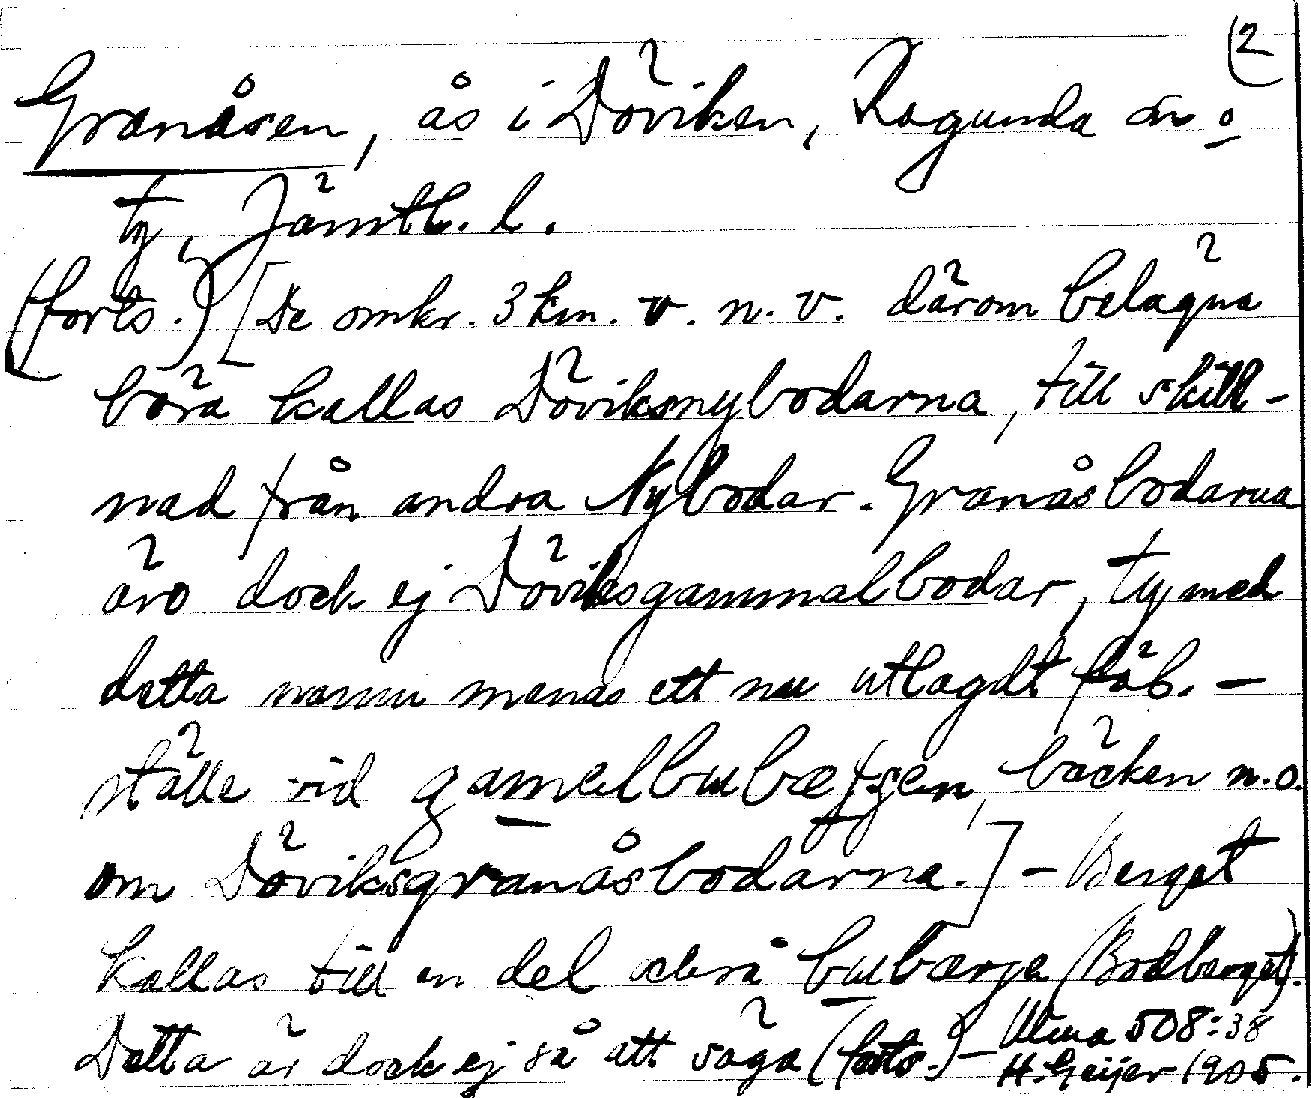 (2
Granåsen, ås i Döviken, Ragunda sn o
ty, Jämtl. l.
(forts.) [De omkr. 3 km. v. n. v. därom belägna
bora kallas Döviksnybodarna, till skill-
nad från andra Nybodar. Granåsbodarna
äro dock ej Döviksgammalbodar, ty med
detta namn menas ett nu utlagdt fäb.-
ställe vid gamelbubætjen, bäcken n.o.
om Döviksgranåsbodarna.] - Berget
kallas till en del också bubærje (Bodberget).
Detta är dock ej så att säga (forts.) - Ulma 508:38
H. Geijer 1905.